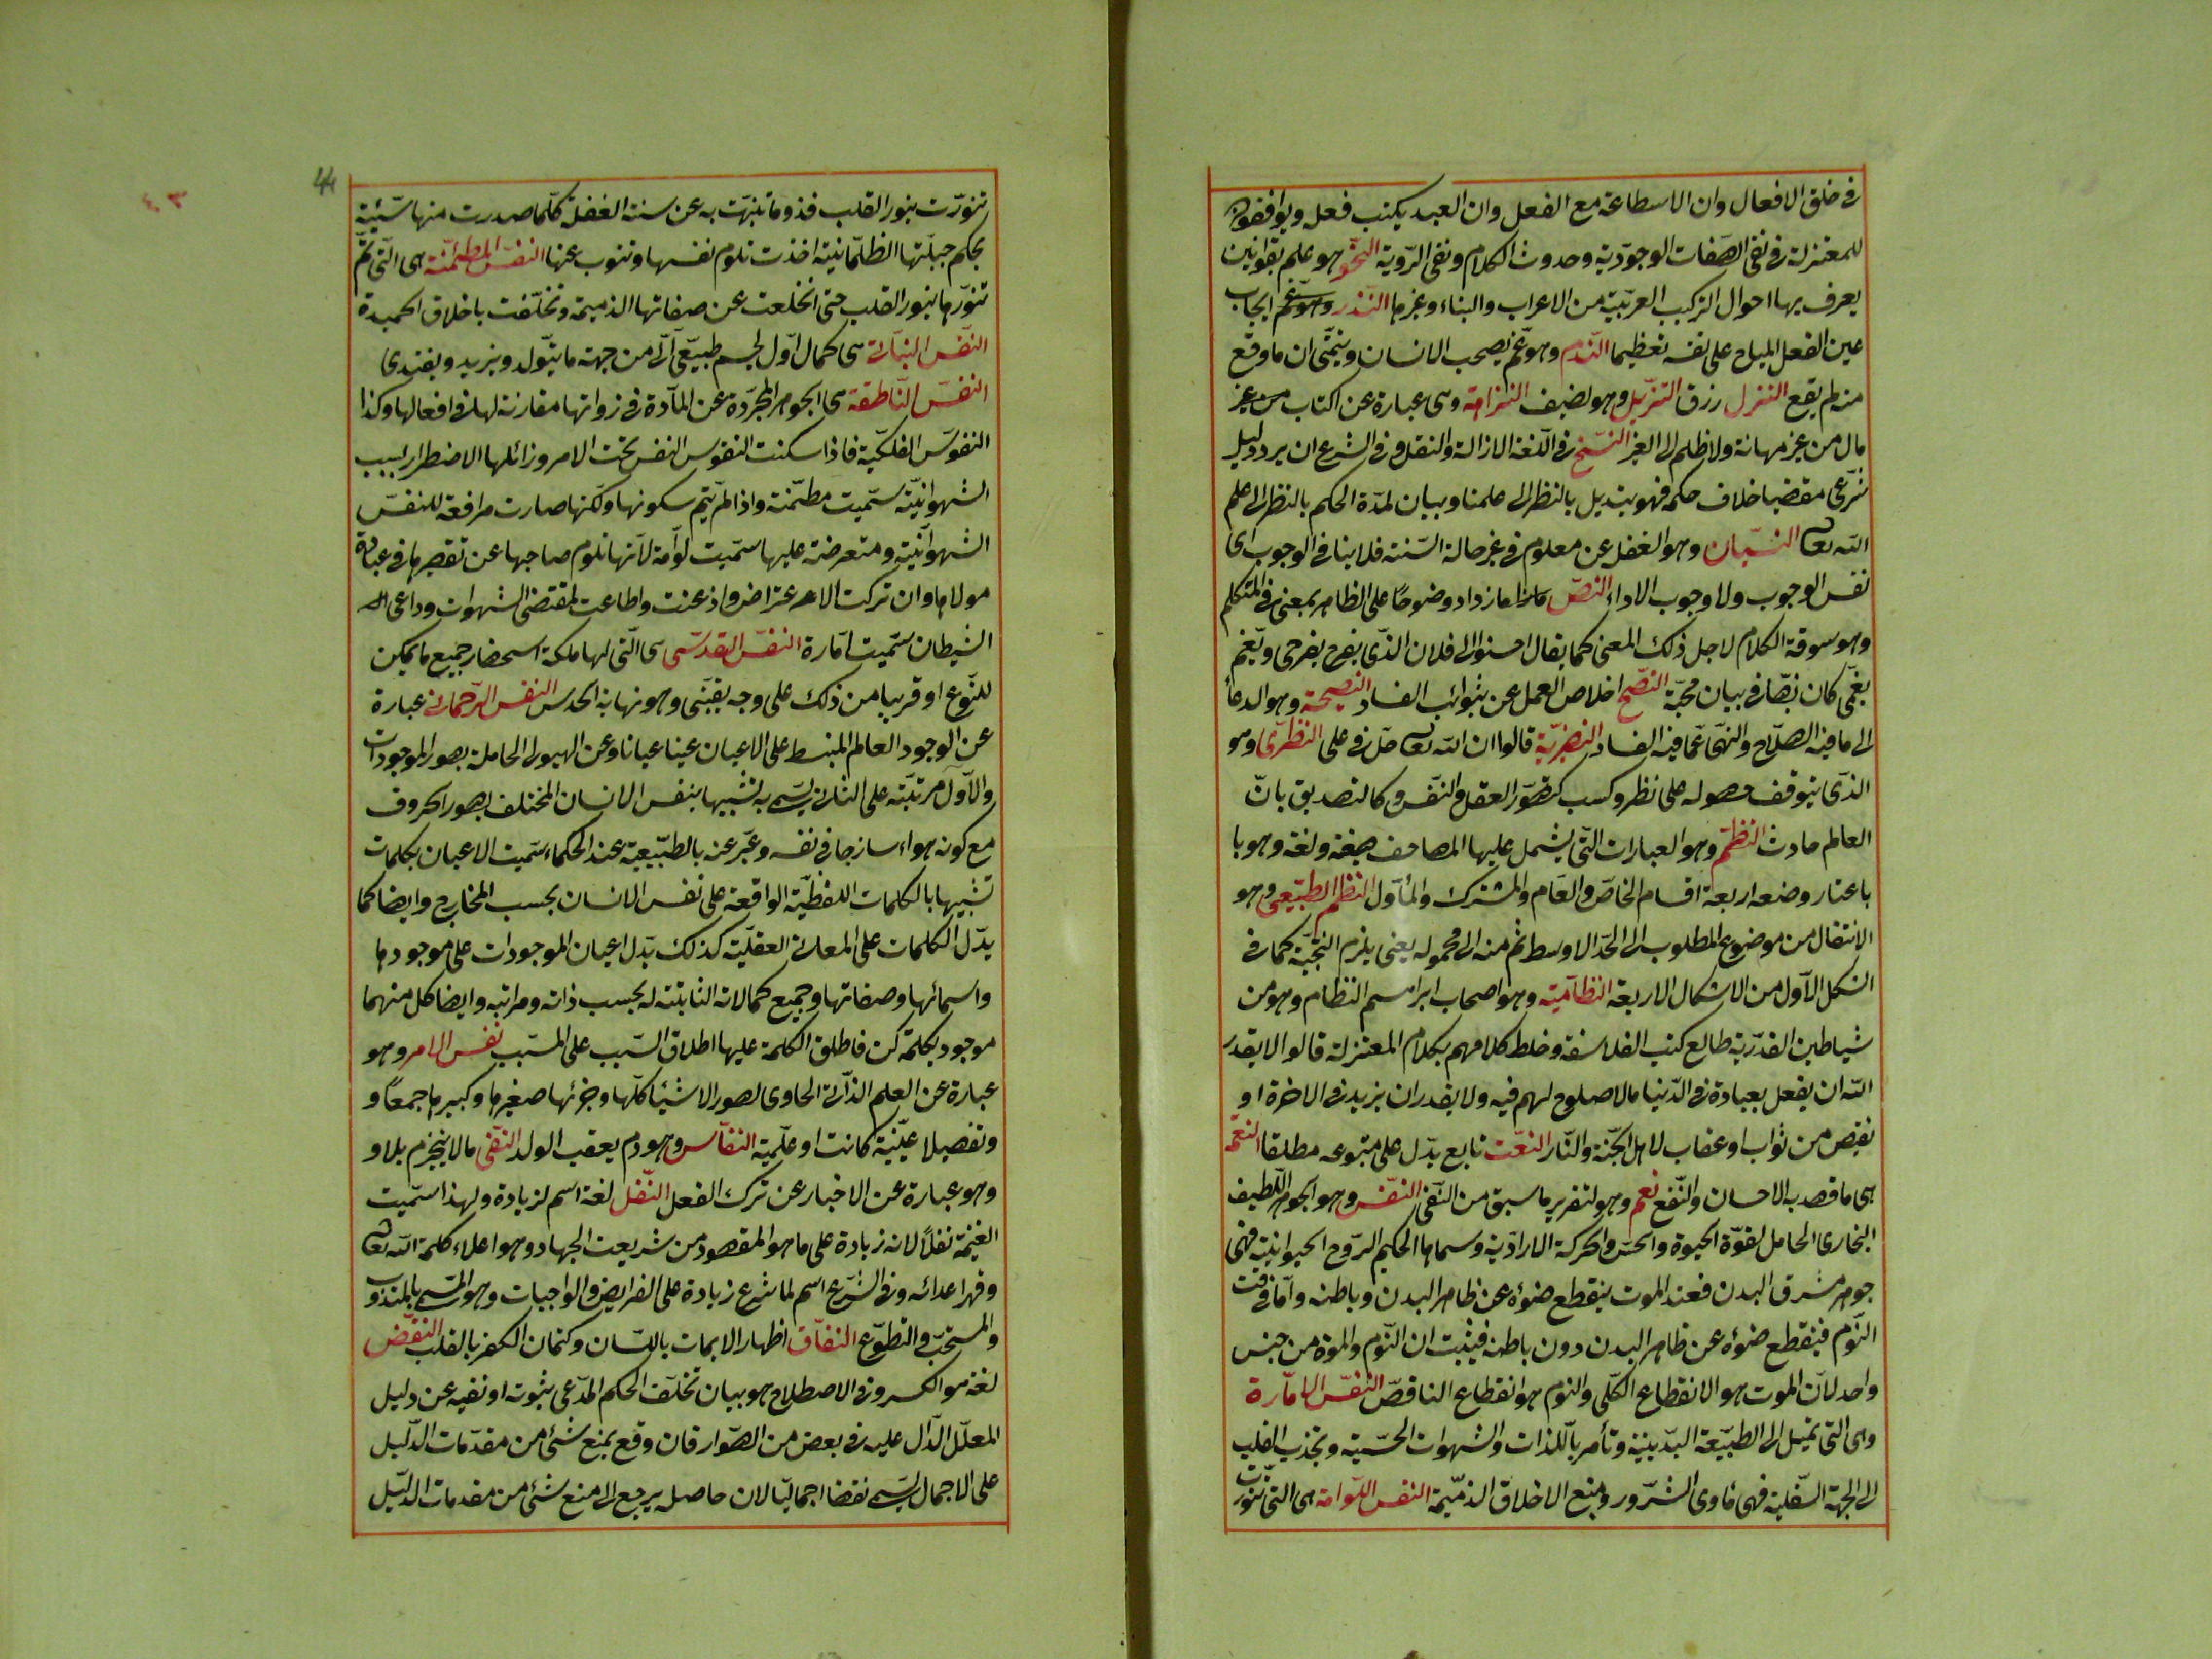 فى خلق الافعال وان الاستطاعة مع الفعل وان العبد يكتسب فعله ويوافقون
للمعتزلة فى نفى الصفات الوجودية وحدوث الكلام ونفى الرؤية النحو هو علم بقوانين
يعرف بها احوال التركيب العربية من الاعراب والبناء وغيرها النذر وهو ايجاب
عين الفعل المباح على نفسه تعظيما الندم وهو غم يصحب الانسان ويتمنى ان ما وقع
منه لم يقع النزل رزق النزيل وهو لضيف النزاهة وهى عبارة عن اكتساب من غير
مال من غير مهانة ولا ظلم الى الغير النسخ فى اللغة الازالة والنقل وفى الشرع ان يرد دليل
شرعى مقتضيا خلاف حكمه فهو تبديل بالنظر الى علمنا وبيان لمدة الحكم بالنظر الى علم
الله تعالى النسيان وهو الغفل عن معلوم فى غير حالة السنة فلا ينافى الوجوب اى
نفس الوجوب ولا وجوب الاداء النص ما ازداد وضوحا على الظاهر بمعنى فى المتكلم
وهو سوقة الكلام لاجل ذلك المعنى كما يقال احسنوا الى فلان الذى يفرح بفرحى ويغم
بغمى كان نصا فى بيان محبة النصح اخلاص العمل عن شوائب الفساد النصيحة وهو الدعاء
الى ما فيه الصلاح والنهى عما فيه الفساد النصيرية قالوا ان الله تعالى حل فى على النظرى وهو
الذى يتوقف حصوله على نظر وكسب كتصور العقل والنفس وكالتصديق بان
العالم حادث النظم وهو العبارات التى يشمل عليها المصاحف صيغة ولغة وهو با
باعتبار وضعه اربعة اقسام الخاص والعام والمشترك والمأول النظم الطبيعى وهو
الانتقال من موضوع المطلوب الى الحد الاوسط ثم منه الى محموله يعنى يلزم النتيجة كما فى
الشكل الاول من الاشكال الاربعة النظامية وهو اصحاب ابراهيم النظام وهو من
شياطين القدرية طالع كتب الفلاسفة وخلط كلامهم بكلام المعتزلة قالوا لا يقدر
الله ان يفعل بعبادة فى الدنيا مالا صلاح لهم فيه ولا يقدر ان يزيد فى الاخرة او
ينقص من ثواب او عقاب لاهل الجنة والنار النعت تابع يدل على متبوعه مطلقا النعمة
هى ما قصد به الاحسان والنفع نعم وهو لتقرير ما سبق من النفى النفس وهو الجوهر اللطيف
البخارى الحامل لقوة الحيوة والحس والحركة الارادية وسماها الحكيم الروح الحيوانية فهى
جوهر مشرق البدن فعند الموت ينقطع ضوئه عن ظاهر البدن وباطنه واما فى وقت
النوم فينقطع ضوئه عن ظاهر البدن دون باطنه فيثبت ان النوم والموت من جنس
واحد لان الموت هو الانقطاع الكلى والنوم هو انقطاع الناقص النفس الامارة
وهى التى تميل الى الطبيعة البدنية وتأمر باللذات والشهوات الحسية وتجذب القلب
الى الجهة السفلية فهى مأوى الشرور ومنبع الاخلاق الذميمة النفس اللوامة هى التى تنورت
تنورت بنور القلب قدر ما تنبهت به عن سنة الغفلة كلما صدرت منها سيئة
بحكم جبلتها الظلمانية اخذت تلوم نفسها وتتوب عنها النفس المطمئنة هى التى تم
تنورها بنور القلب حتى انخلعت عن صفاتها الذميمة وتخلقت باخلاق الحميدة
النفس النباتى هى كمال اول لجسم طبيعى آلى من جهة ما يتولد ويزيد ويغتذى
النفس الناطقة هى الجوهر المجردة عن المادة فى ذواتها مقارنة لها فى افعالها وكذا
النفوس الفلكية فاذا سكنت النفوس النفس تحت الامر وزائلها الاضطرار بسبب
الشهوانية سميت مطمئنة واذا لم يتم سكونها ولكنها صارت مرافعة للنفس
الشهوانية ومتعرضة عليها سميت لوامة لانها تلوم صاحبها عن تقصيرها فى عبادة
مولاها وان تركت الاعتراض واذعنت واطاعت لمقتضى الشهوات وداعى
الشيطان سميت امارة النفس القدسى هى التى لها ملكة استحضار جميع ما يمكن
للنوع او قريبا من ذلك على وجه يقينى وهو نهاية الحدس النفس الرحمانى عبارة
عن الوجود العالم المنبسط على الاعيان عينا عيانا وعن الهيولى الحاملة بصور الموجودات
والاول مرتبة على الثانى يسمى به تشبيها بنفس الانسان المختلف بصور الحروف
مع كونه هواء ساذجا فى نفسه وعبر عنه بالطبيعية عند الحكماء سميت الاعيان بكلمات
تشبيها بالكلمات اللفظية الواقعة على نفس الانسان بحسب المخارج وايضا كما
يدل الكلمات على المعانى العقلية كذلك يدل اعيان الموجودات على موجودها
واسمائها وصفاتها وجميع كمالاته الثابتة له بحسب ذاته ومراتبه وايضا كل منهما
موجود بكلمة كن فاطلق الكلمة عليها اطلاق السبب على المسبب نفس الامر وهو
عبارة عن العلم الذاتى الحاوى لصور الاشياء كلها وجزئها صغيرها وكبيرها جمعا و
وتفصيلا عينية كانت او علمية النفاس وهو دم يعقب الولد النفى مالا ينجزم بلا و
وهو عبارة عن الاخبار عن ترك الفعل النفل لغة اسم لزيادة ولهذا سميت
الغنيمة نفلا لانه زيادة على ما هو المقصود من شريعت الجهاد وهو اعلاء كلمة الله تعالى
وقهر اعدائه وفى الشرع اسم لما شرع زيادة على الفرايض والواجبات وهو المسمى بالمندوب
والمستحب والتطوع النفاق اظهار الايمان باللسان وكتمان الكفر بالقلب النقض
لغة هو الكسر وفى الاصطلاح هو بيان تخلف الحكم المدعى بثوته او نفيه عن دليل
المعلل الدال عليه فى بعض من الصوار فان وقع بمنع شئ من مقدمات الدليل
على الاجمال يسمى نقضا اجماليا لان حاصله يرجع الى منع شئ من مقدمات الدليل